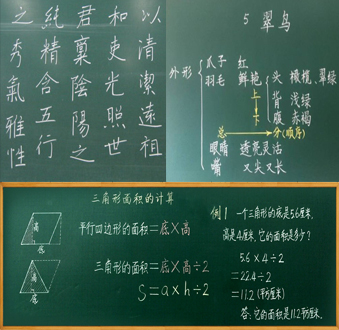 以清潔遠祖
和吏光照世
君稟陰陽之
純精含五行
之秀氣雅性
5 翠鸟
外形
爪子 红
羽毛 鲜艳 头 橄榄,翠绿
上 背 浅绿
下 腹 赤褐
总 分(顺序)
眼睛 透亮灵活
嘴 又尖又长
三角形面积的计算
高
底
平行四边形的面积=底×高
高
底
三角形的面积=底×高÷2
S=a×h÷2
例1 一个三角形的底是5.6厘米,
高是4厘米,它的面积是多少?
5.6×4÷2
=22.4÷2
=11.2(平方厘米)
答:它的面积是11.2平方厘米.